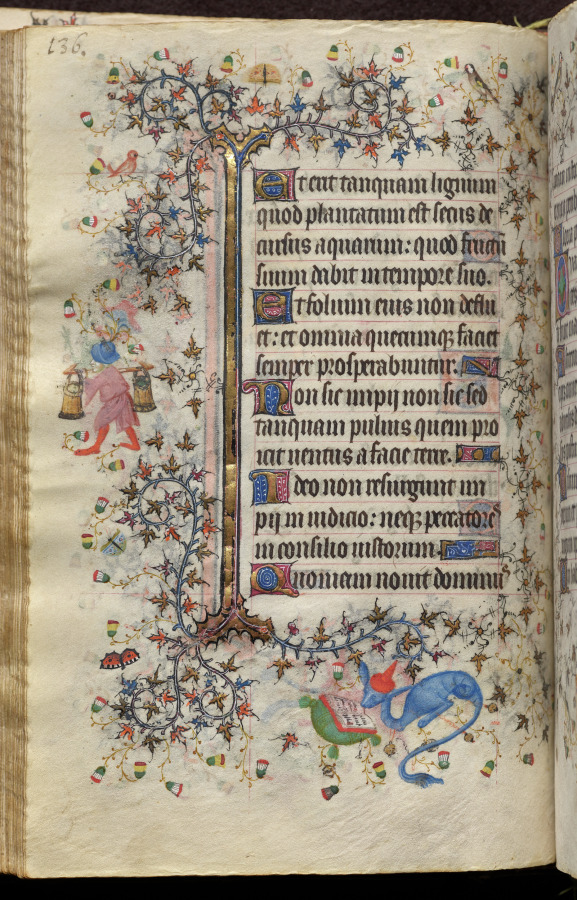 136.
Et erit tanquam lignum
quod plantatum est secus de
cursus aquarum: quod fructu
suum dabit in tempore suo.
Et folium eius non deflu
et: et omnia quecumq; faciet
semper prosperabuntur.
Non sic impij non sic sed
tanquam puluis quem pro
icit uentus a facie terre.
Ideo non resurgunt im
pij in iudicio: neq; peccatores
in consilio iustorum.
Quoniam nouit dominus